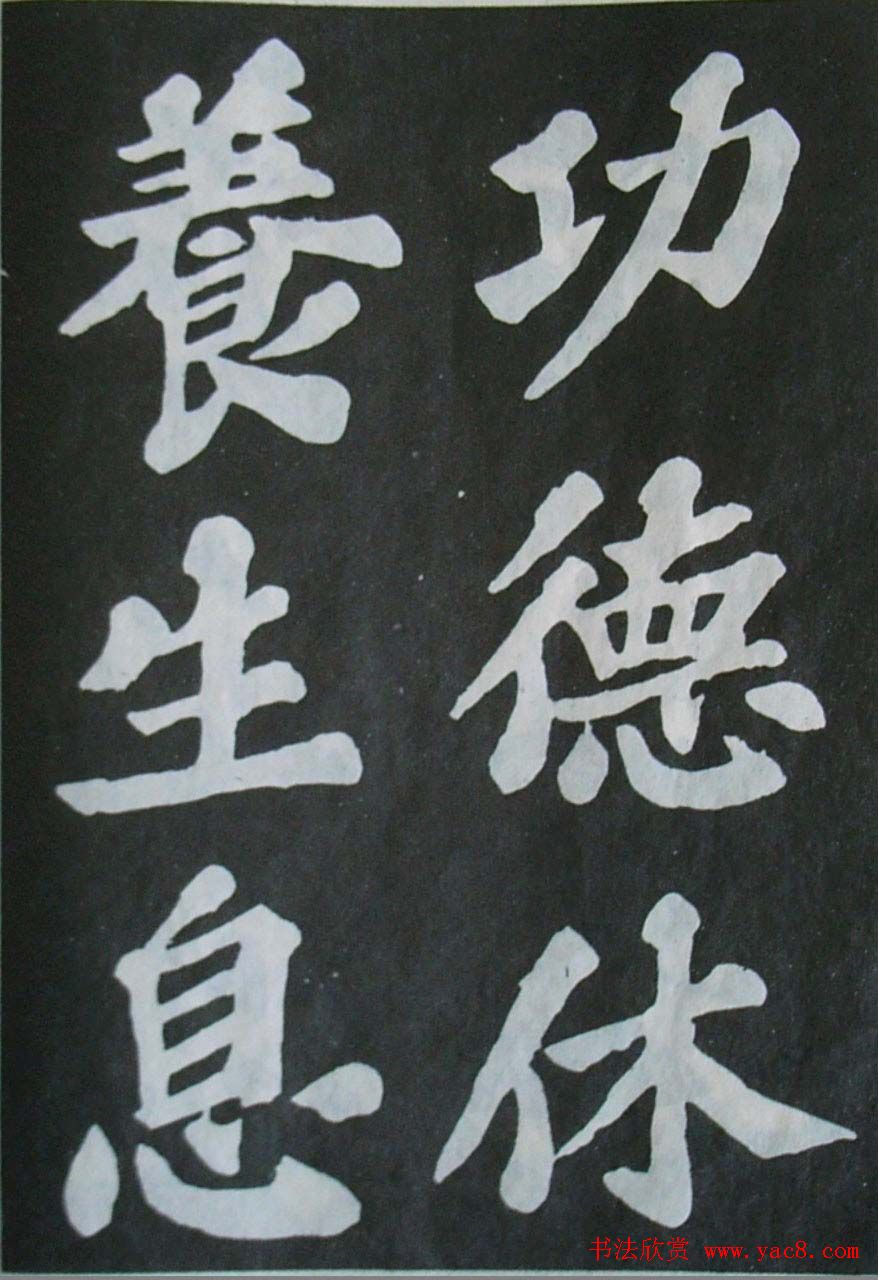 功德休
養生息
书法欣赏 www.yac8.com